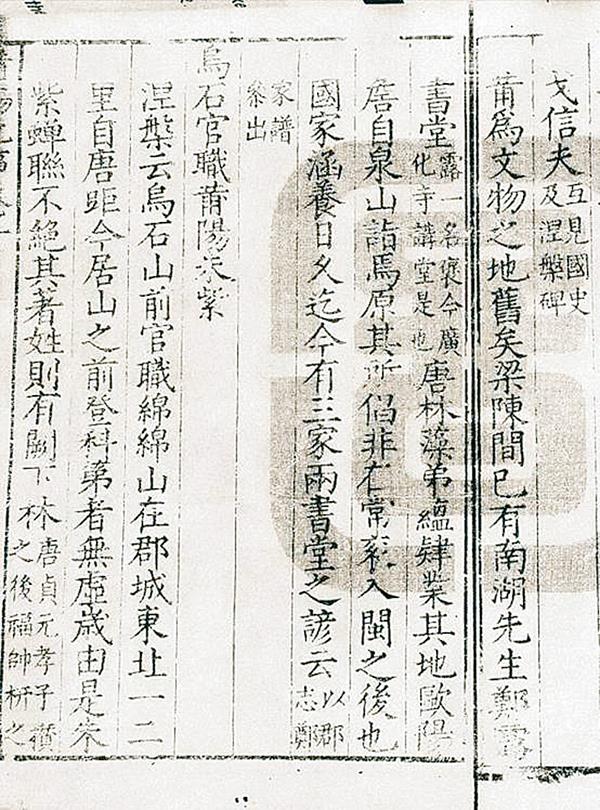 戈信夫互見國史及涅槃碑
莆爲文物之地舊矣梁陳間已有南湖先生鄭露
書堂露一名褒今廣化寺講堂是也唐林藻弟蘊肄業其地歐陽
詹自泉山詣焉原其所倡非在常袞入閩之後也
國家涵養日久迄今有三家兩書堂之諺云以郡志鄭
家譜參出
烏石官職莆陽朱紫
涅槃云烏石山前官職綿綿山在郡城東北一二
里自唐距今居山之前登科第者無虛歲由是朱
紫蟬聯不絕其著姓則有闕下林唐貞元孝子攢之後福帥枅之